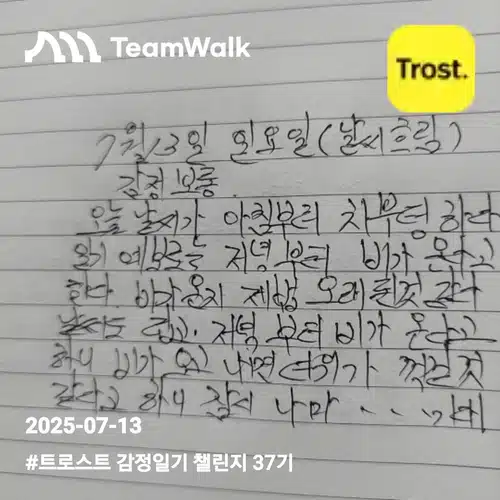 TeamWalk
Trost.
7월13일 일요일(날씨흐림)
감정 보통.
오늘 날씨가 아침부터 하다
일기 예보로는 저녁부터 비가 온다고
한다. 비가온지 제법 오래된것 같다
날씨도 덥고. 저녁 부터 비가 온다고
하니 비가 오고 나면 더위가 꺽긴것
같다고 하니 잠시 나마
2025-07-13
#트로스트 감정일기 챌린지 37기